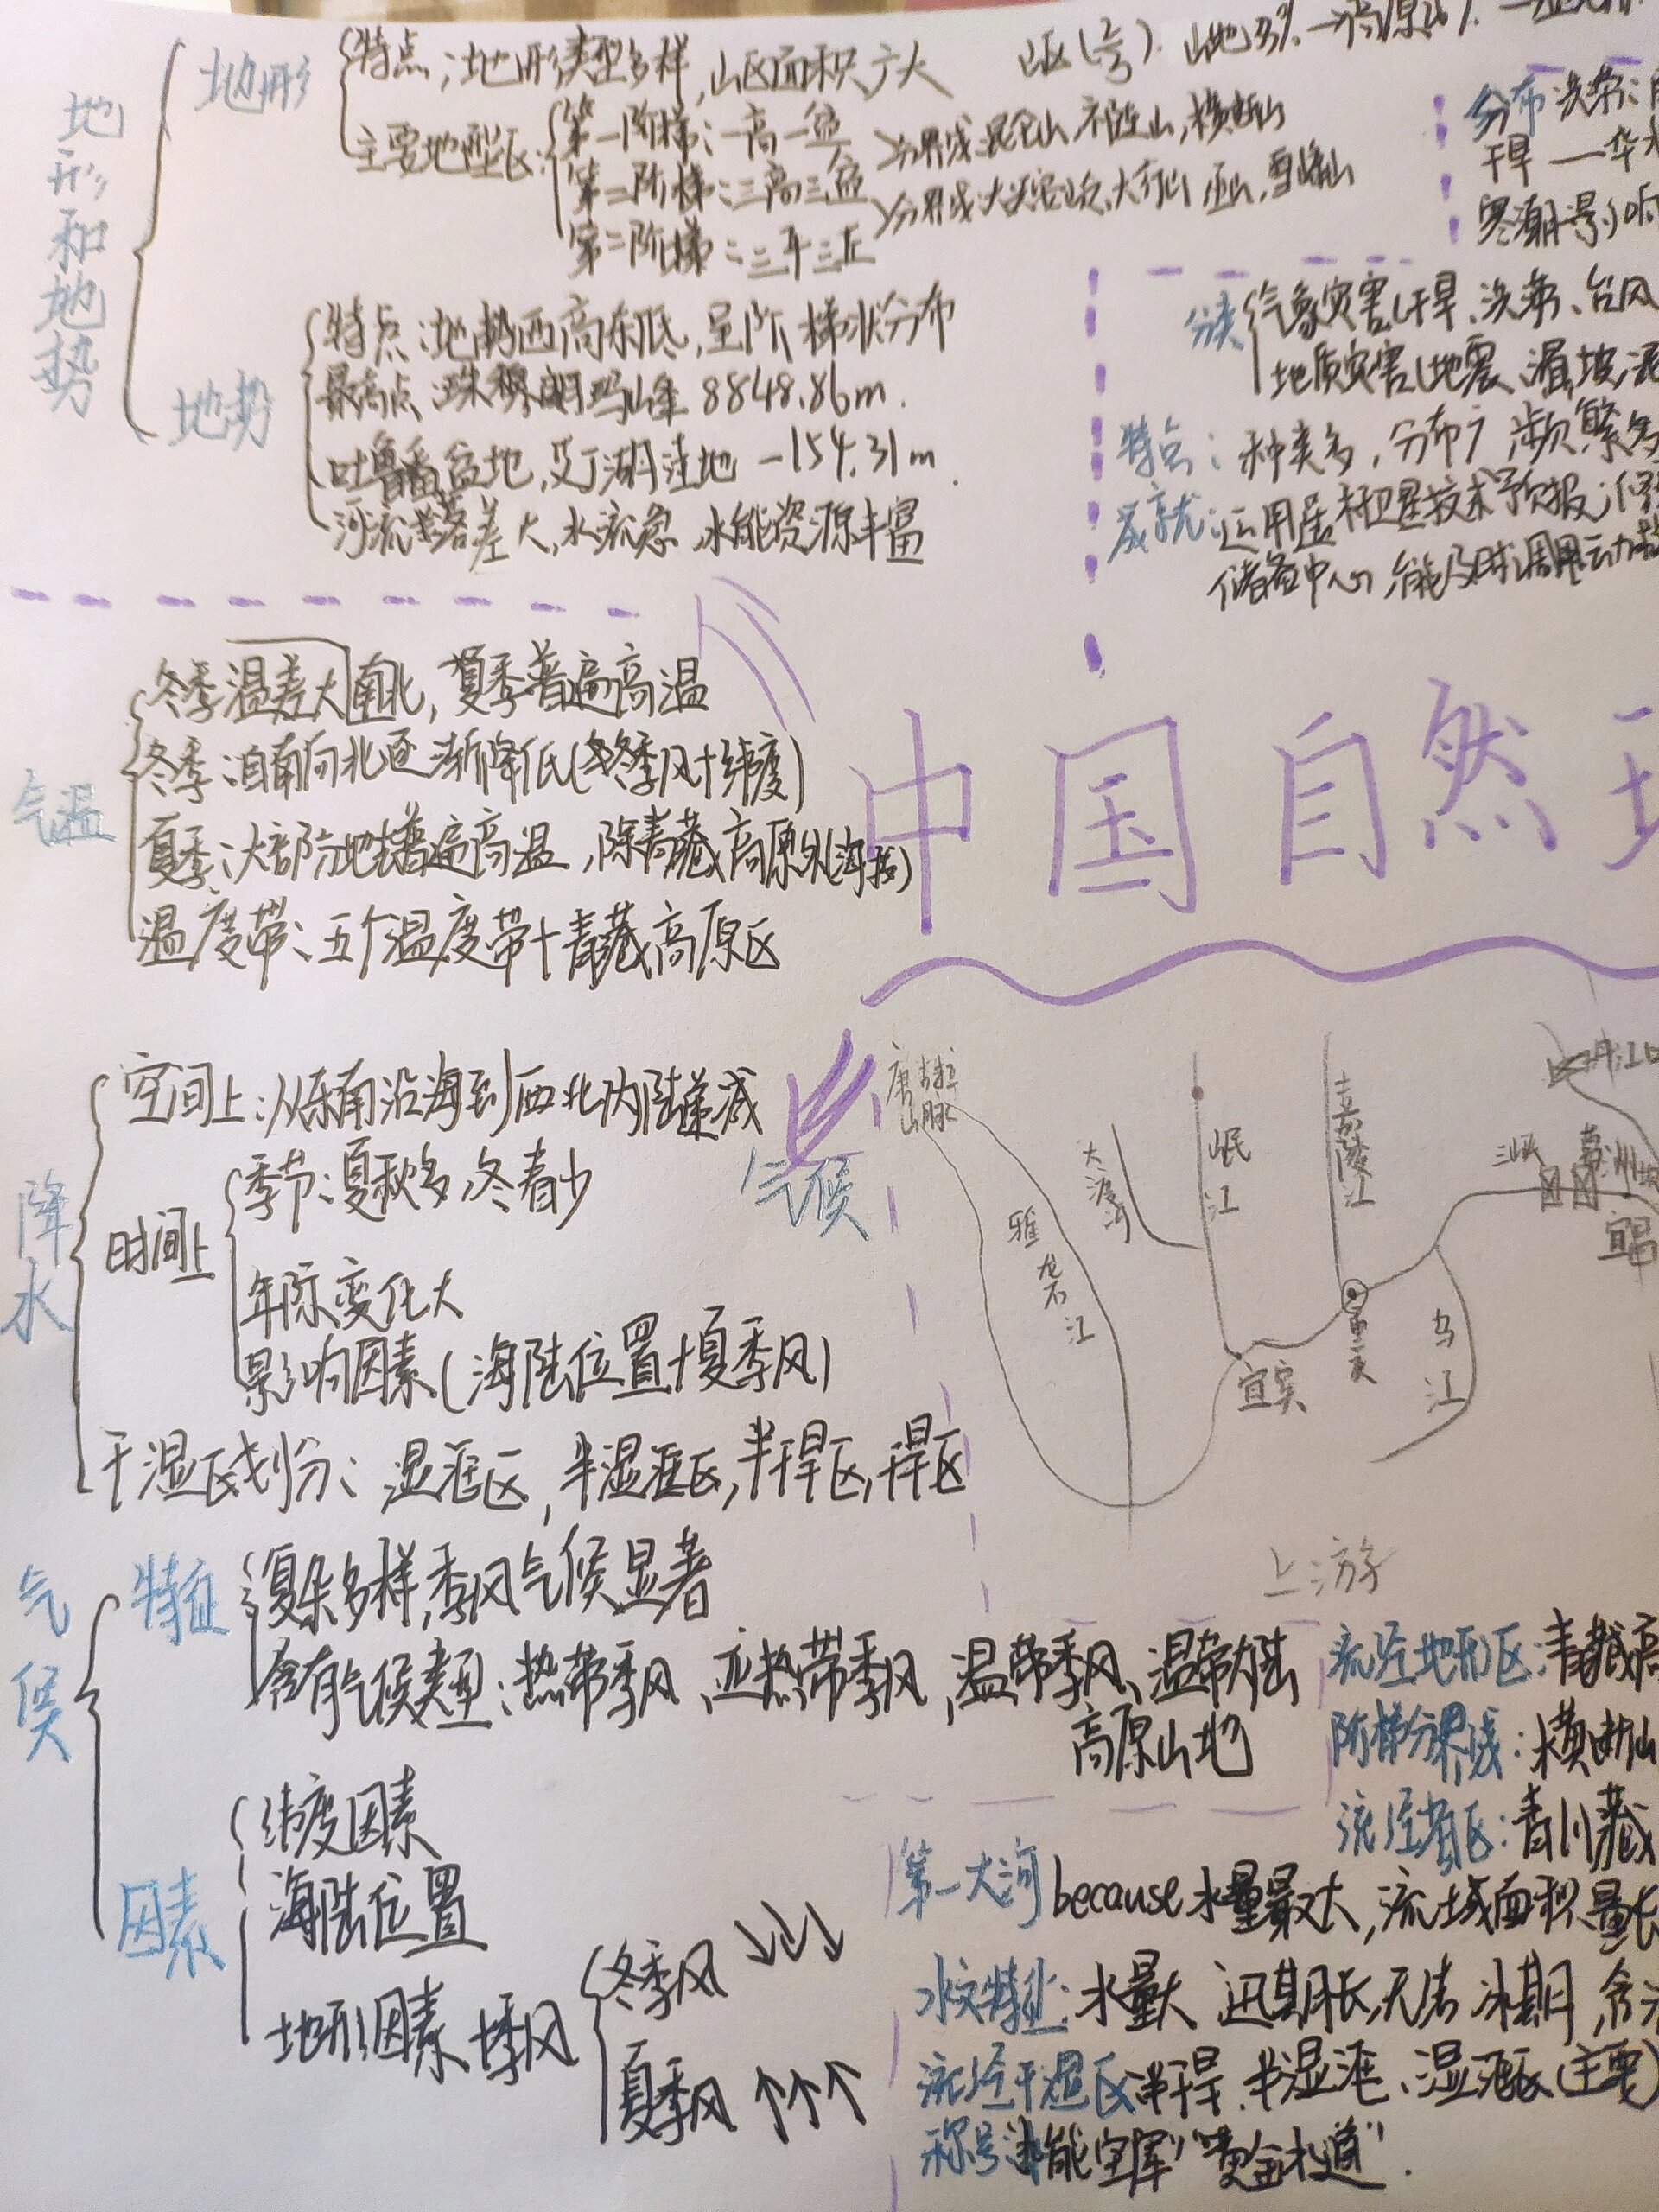 地形和地势
地形
特点:地形类型多样,山区面积广大
山地33%→高原26%
主要地型区:
第一阶梯:一高一盆
>分界线:昆仑山,祁连山,横断山
第二阶梯:三高三盆
>分界线大兴安岭、大行山 巫山,雪峰山
第三阶梯:三平三丘
地势
特点:地势西高东低,呈阶梯状分布
最高点:珠穆朗玛峰 8848.86m.
吐鲁番盆地,艾丁湖洼地 -154.31m.
河流落差大,水流急,水能资源丰富
分布 洪涝:
干旱 — 华
寒潮影响
分类
气象灾害(干旱、洪涝、台风
地质灾害(地震、滑坡,泥
特点:种类多,分布广,频繁
成就:运用 卫星技术予报;
储备中心,能及时调
气温
冬季温差大南北,夏季普遍高温
冬季:自南向北逐渐降低(冬季风+纬度)
夏季:大部分地普遍高温,除青藏高原外(海拔)
温度带:五个温度带+青藏高原区
中国自然
降水
空间上:从东南沿海到西北内陆递减
时间上
季节:夏秋多,冬春少
年际变化大
影响因素(海陆位置+夏季风)
干湿区划分:湿润区,半湿润区,半干旱区,干旱区
气候
唐古拉山脉
雅龙江
大渡河
岷江
嘉陵江
三峡
宜昌
宜宾
重庆
乌江
上游
气候
特征
复杂多样,季风气候显著
含有气候类型:热带季风、亚热带季风,温带季风、温带大陆
高原山地
因素
纬度因素
海陆位置
地形因素 +季风
冬季风 ↘↘↘
夏季风 ↑↑↑
流经地形区:青藏高
阶梯分界线:横断山
流经省区:青川藏
第一大河 because 水量最大,流域面积
水文特征:水量大 汛期长,无结冰期,含沙
流经干湿区 半干旱、半湿润、湿润区(主要)
称号"水能宝库""黄金水道".